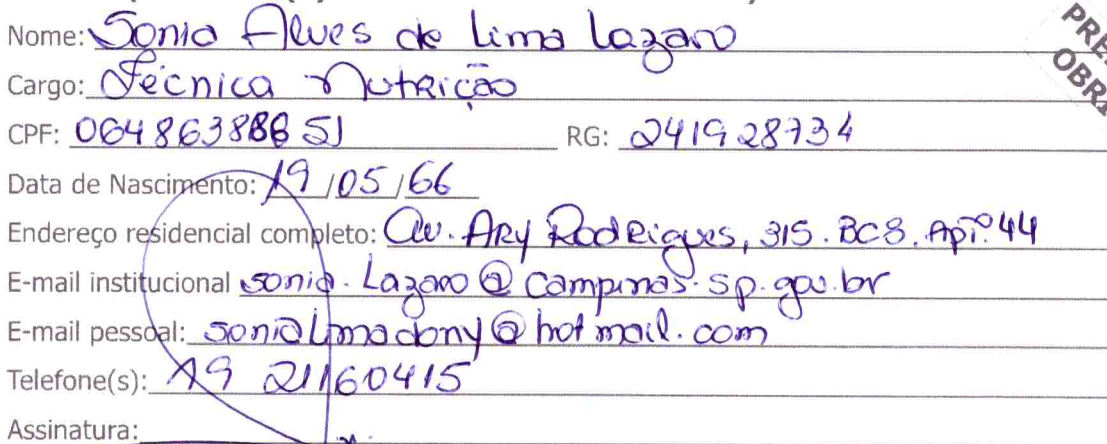 Nome: Sonia Alves de Lima Lazaro
Cargo: Técnica Nutrição
CPF: 06486388651 RG: 241928734
Data de Nascimento: 19/05/66
Endereço residencial completo: Av. Ary Rodrigues, 315. BC8. Apt.º 44
E-mail institucional sonia.Lazaro@campinas.sp.gov.br
E-mail pessoal: sonialimadony@hotmail.com
Telefone(s): 19 21160415
Assinatura: